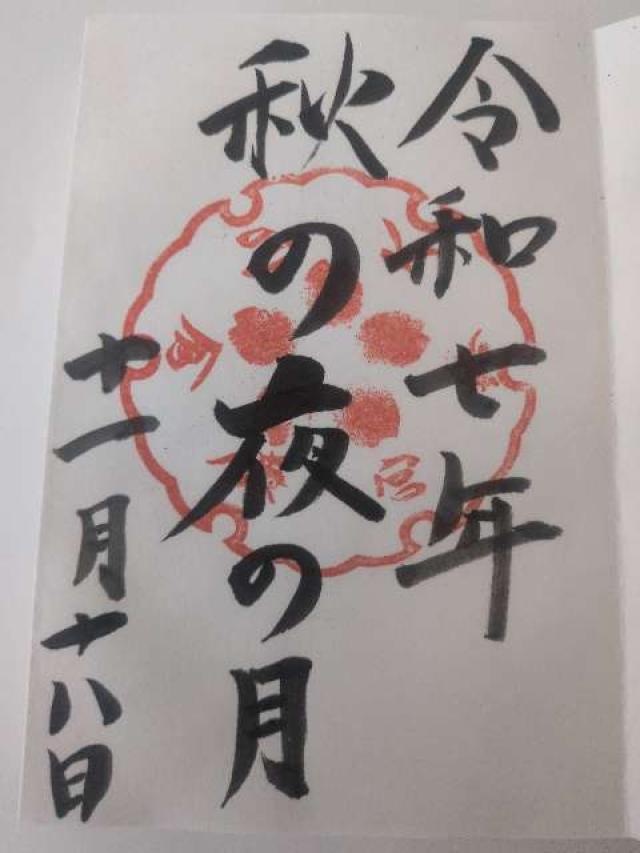 令和七年
秋の夜の月
十一月十八日